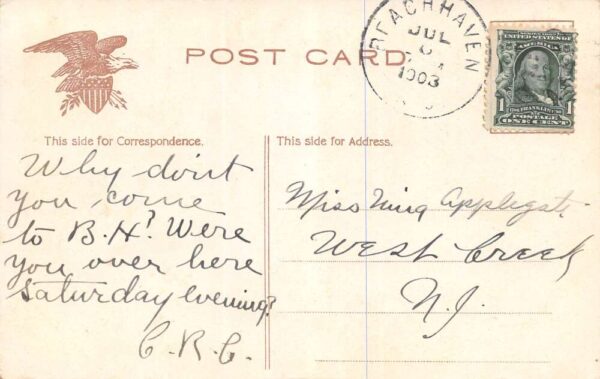 POST CARD
BEACHHAVEN
JUL
6
1908
SERIES 1902
UNITED STATES OF
AMERICA
1 FRANKLIN 1
POSTAGE
ONE CENT
This side for Correspondence.
This side for Address.
Why don't
you come
to B.H? Were
you over here
Saturday evening?
C.R.C.
Miss Nina Applegat.
West Creek
N.J.